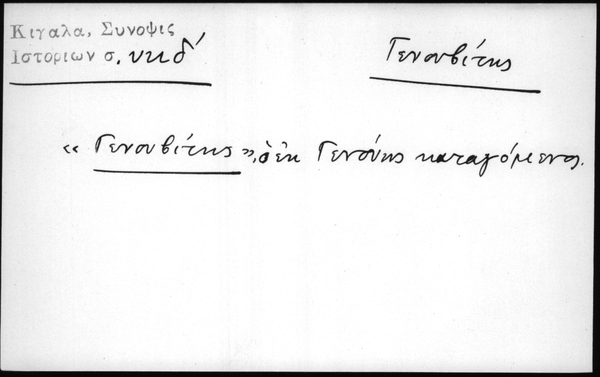 Κιγαλα, Συνοψις
Ιστοριων σ. υκδ´
Γενουβίτης
« Γενουβίτης », ὁ ἐκ Γενούης καταγόμενος.